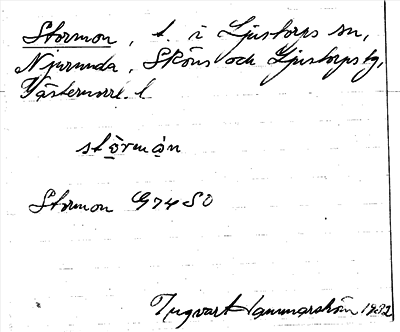 Stormon, t. i Ljustorps sn,
Njurunda, Sköns och Ljustorps tg,
Västernorrl. l
stọ̈rmọ̀n
Stormon G74 SO
Ingvart Hammarström 1932